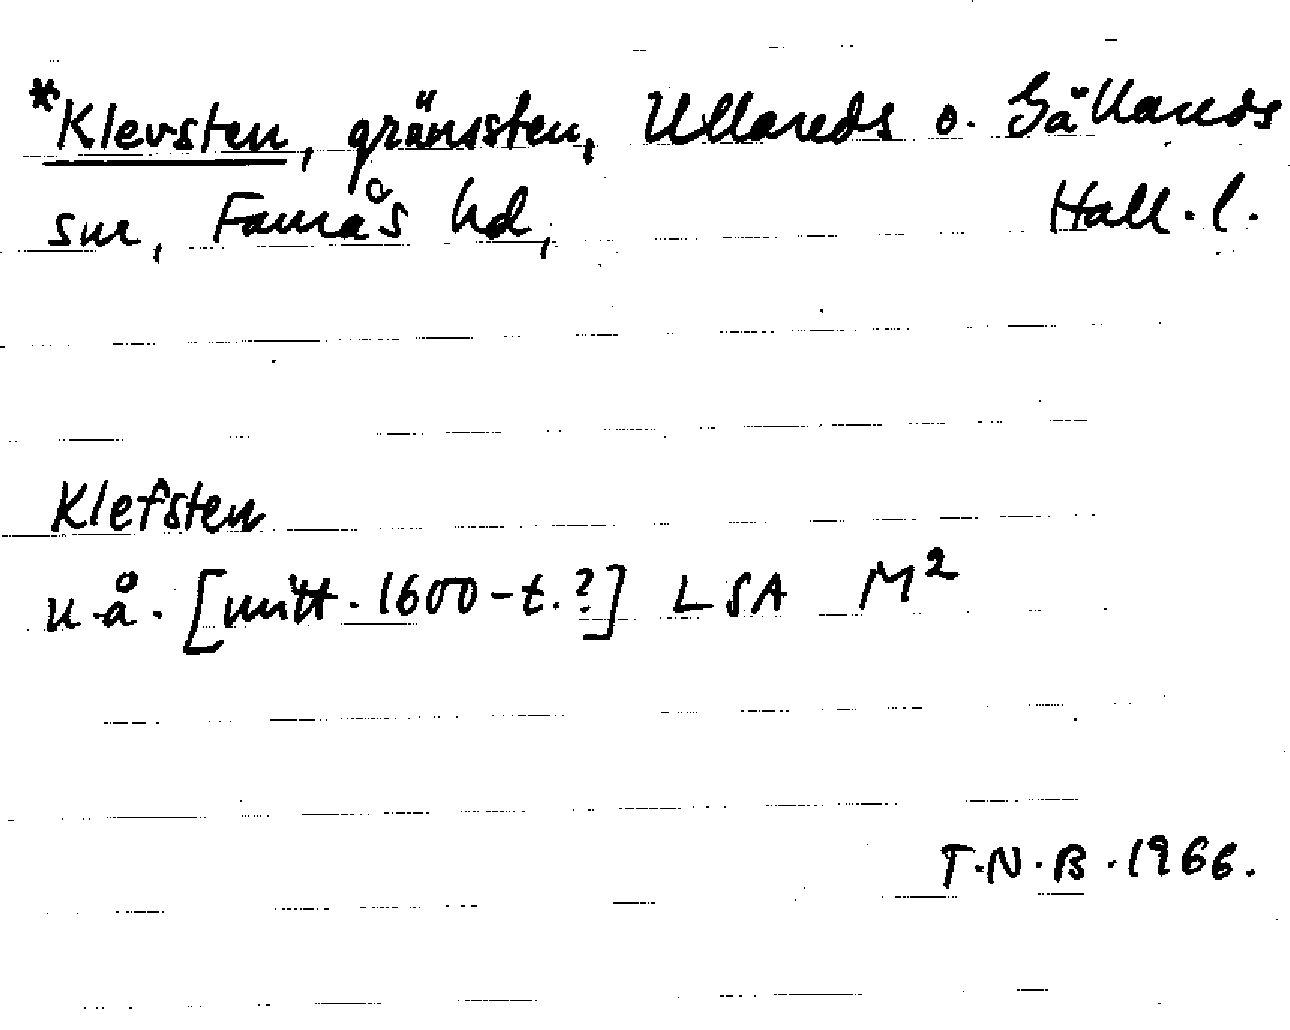 *Klevsten, gränssten, Ullareds o. Källareds
snr, Faurås hd, Hall. l.
Klefsten
u.å. [mitt. 1600-t.?] LSA M²
T.N.B. 1966.